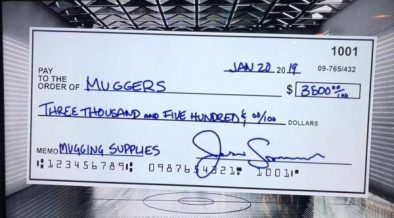 1001
JAN 20 2019 09-765/432
PAY
TO THE
ORDER OF MUGGERS $ 3500 00/100
THREE THOUSAND AND FIVE HUNDRED & 00/100 DOLLARS
MEMO MUGGING SUPPLIES
⑆123456789⑆ 0987654321⑈ 1001⑆